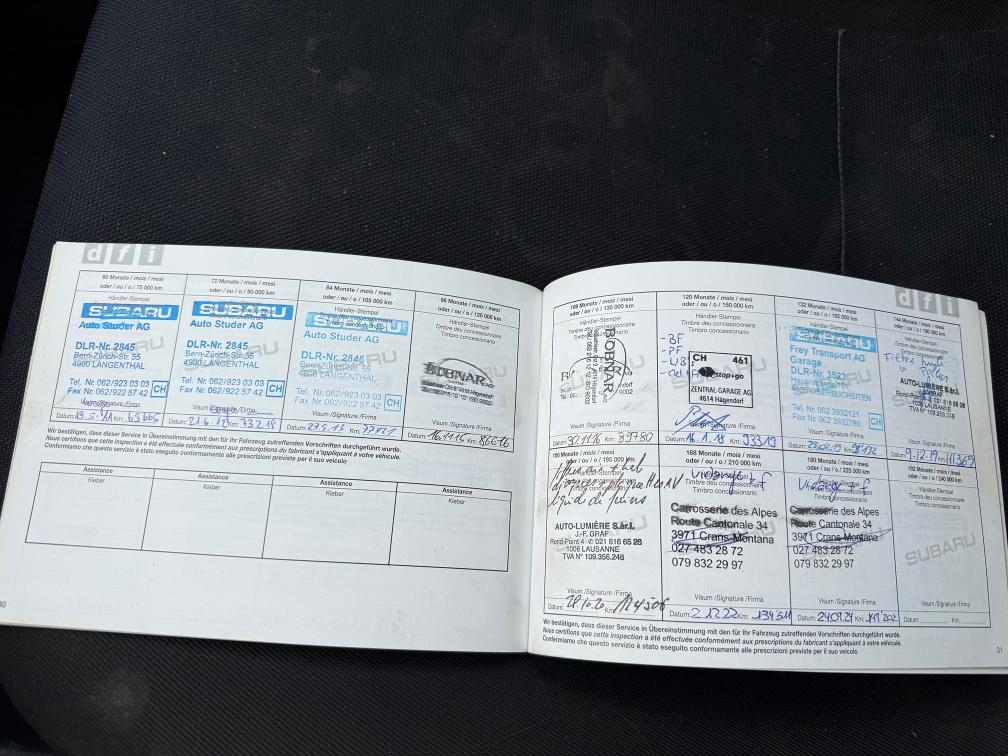 dfi
60 Monate / mois / mesi
oder / ou / o / 75 000 km
Händler-Stempel
SUBARU
Auto Studer AG
DLR-Nr. 2845
Bern-Zürich-Str. 55
4900 LANGENTHAL
Tel. Nr. 062/923 03 03
Fax Nr. 062/922 57 42
CH
Visum/Signature/Firma
Datum: 19.5.11 Km: 65665
72 Monate / mois / mesi
oder / ou / o / 90 000 km
SUBARU
Auto Studer AG
DLR-Nr. 2845
Bern-Zürich-Str. 55
4900 LANGENTHAL
Tel. Nr. 062/923 03 03
Fax Nr. 062/922 57 42
CH
Visum /Signature /Firma
Datum: 21.6.12 Km: 73218
84 Monate / mois / mesi
oder / ou / o / 105 000 km
Händler-Stempel
Timbre des concessionnaire
Timbro concessionario
SUBARU
Auto Studer AG
DLR-Nr. 2845
Bern-Zürich-Str. 55
4900 LANGENTHAL
Tel. Nr. 062/923 03 03
Fax Nr. 062/922 57 42
CH
Visum /Signature /Firma
Datum: 27.5.13 Km:
96 Monate / mois / mesi
oder / ou / o / 120 000 km
Händler-Stempel
Timbre deu concessionnaire
Timbro concessionario
BOBNAR
4614 Hägendorf
Visum /Signature /Firma
Datum: Km: 86616
Wir bestätigen, dass dieser Service in Übereinstimmung mit den für Ihr Fahrzeug zutreffenden Vorschriften durchgeführt wurde.
Nous certifions que cette inspection a été effectuée conformément aux prescriptions du fabricant s'appliquant à votre véhicule.
Confermiamo che questo servizio è stato eseguito conformemente alle prescrizioni previste per il suo veicolo
Assistance
Kleber
Assistance
Kleber
Assistance
Kleber
Assistance
Kleber
dfi
108 Monate / mois / mesi
oder / ou / o / 135 000 km
Händler-Stempel
Timbre deu concessionnaire
BOBNAR
Visum /Signature /Firma
Datum: 30.11.16 Km: 89780
120 Monate / mois / mesi
oder / ou / o / 150 000 km
Händler-Stempel
Timbre deu concessionnaire
Timbro concessionario
-BF
-PF
CH 461
stop+go
ZENTRAL GARAGE AG
4614 Hägendorf
Visum /Signature /Firma
Datum: 16.1.18 Km: 93319
132 Monate / mois / mesi
oder / ou / o / 165 000 km
Händler-Stempel
SUBARU
Frey Transport AG
Garage
DLR-Nr. 3523
OBERBUCHSITEN
Tel. Nr. 062 3932121
Fax Nr. 062 3932780
CH
Visum /Signature /Firma
Datum: 25.02.19 Km: 98132
144 Monate / mois / mesi
oder / ou / o / 180 000 km
Händler-Stempel
AUTO-LUMIÈRE S.à.r.l.
J.-F. GRAF
1006 LAUSANNE
TVA N° 109.356.248
Visum /Signature /Firma
Datum: 9.12.19 Km: 111369
156 Monate / mois / mesi
oder / ou / o / 195 000 km
liquid de freins
AUTO-LUMIÈRE S.à.r.l.
J.-F. GRAF
Rond-Point 4 ✆ 021 616 65 28
1006 LAUSANNE
TVA N° 109.356.248
Visum /Signature /Firma
Datum: 28.10.20 Km: 124506
168 Monate / mois / mesi
oder / ou / o / 210 000 km
Vidange + F
Timbre deu concessionnaire
Timbro concessionario
Carrosserie des Alpes
Route Cantonale 34
3971 Crans-Montana
027 483 28 72
079 832 29 97
Visum /Signature /Firma
Datum: 2.12.22 Km: 134511
180 Monate / mois / mesi
oder / ou / o / 225 000 km
Vidange + f
Carrosserie des Alpes
Route Cantonale 34
3971 Crans-Montana
027 483 28 72
079 832 29 97
Visum /Signature /Firma
Datum: 24.09.24 Km: 149'202
192 Monate / mois / mesi
oder / ou / o / 240 000 km
Händler-Stempel
Timbre deu concessionnaire
Timbro concessionario
SUBARU
Visum /Signature /Firma
Datum: Km:
Wir bestätigen, dass dieser Service in Übereinstimmung mit den für Ihr Fahrzeug zutreffenden Vorschriften durchgeführt wurde.
Nous certifions que cette inspection a été effectuée conformément aux prescriptions du fabricant s'appliquant à votre véhicule.
Confermiamo che questo servizio è stato eseguito conformemente alle prescrizioni previste per il suo veicolo
31